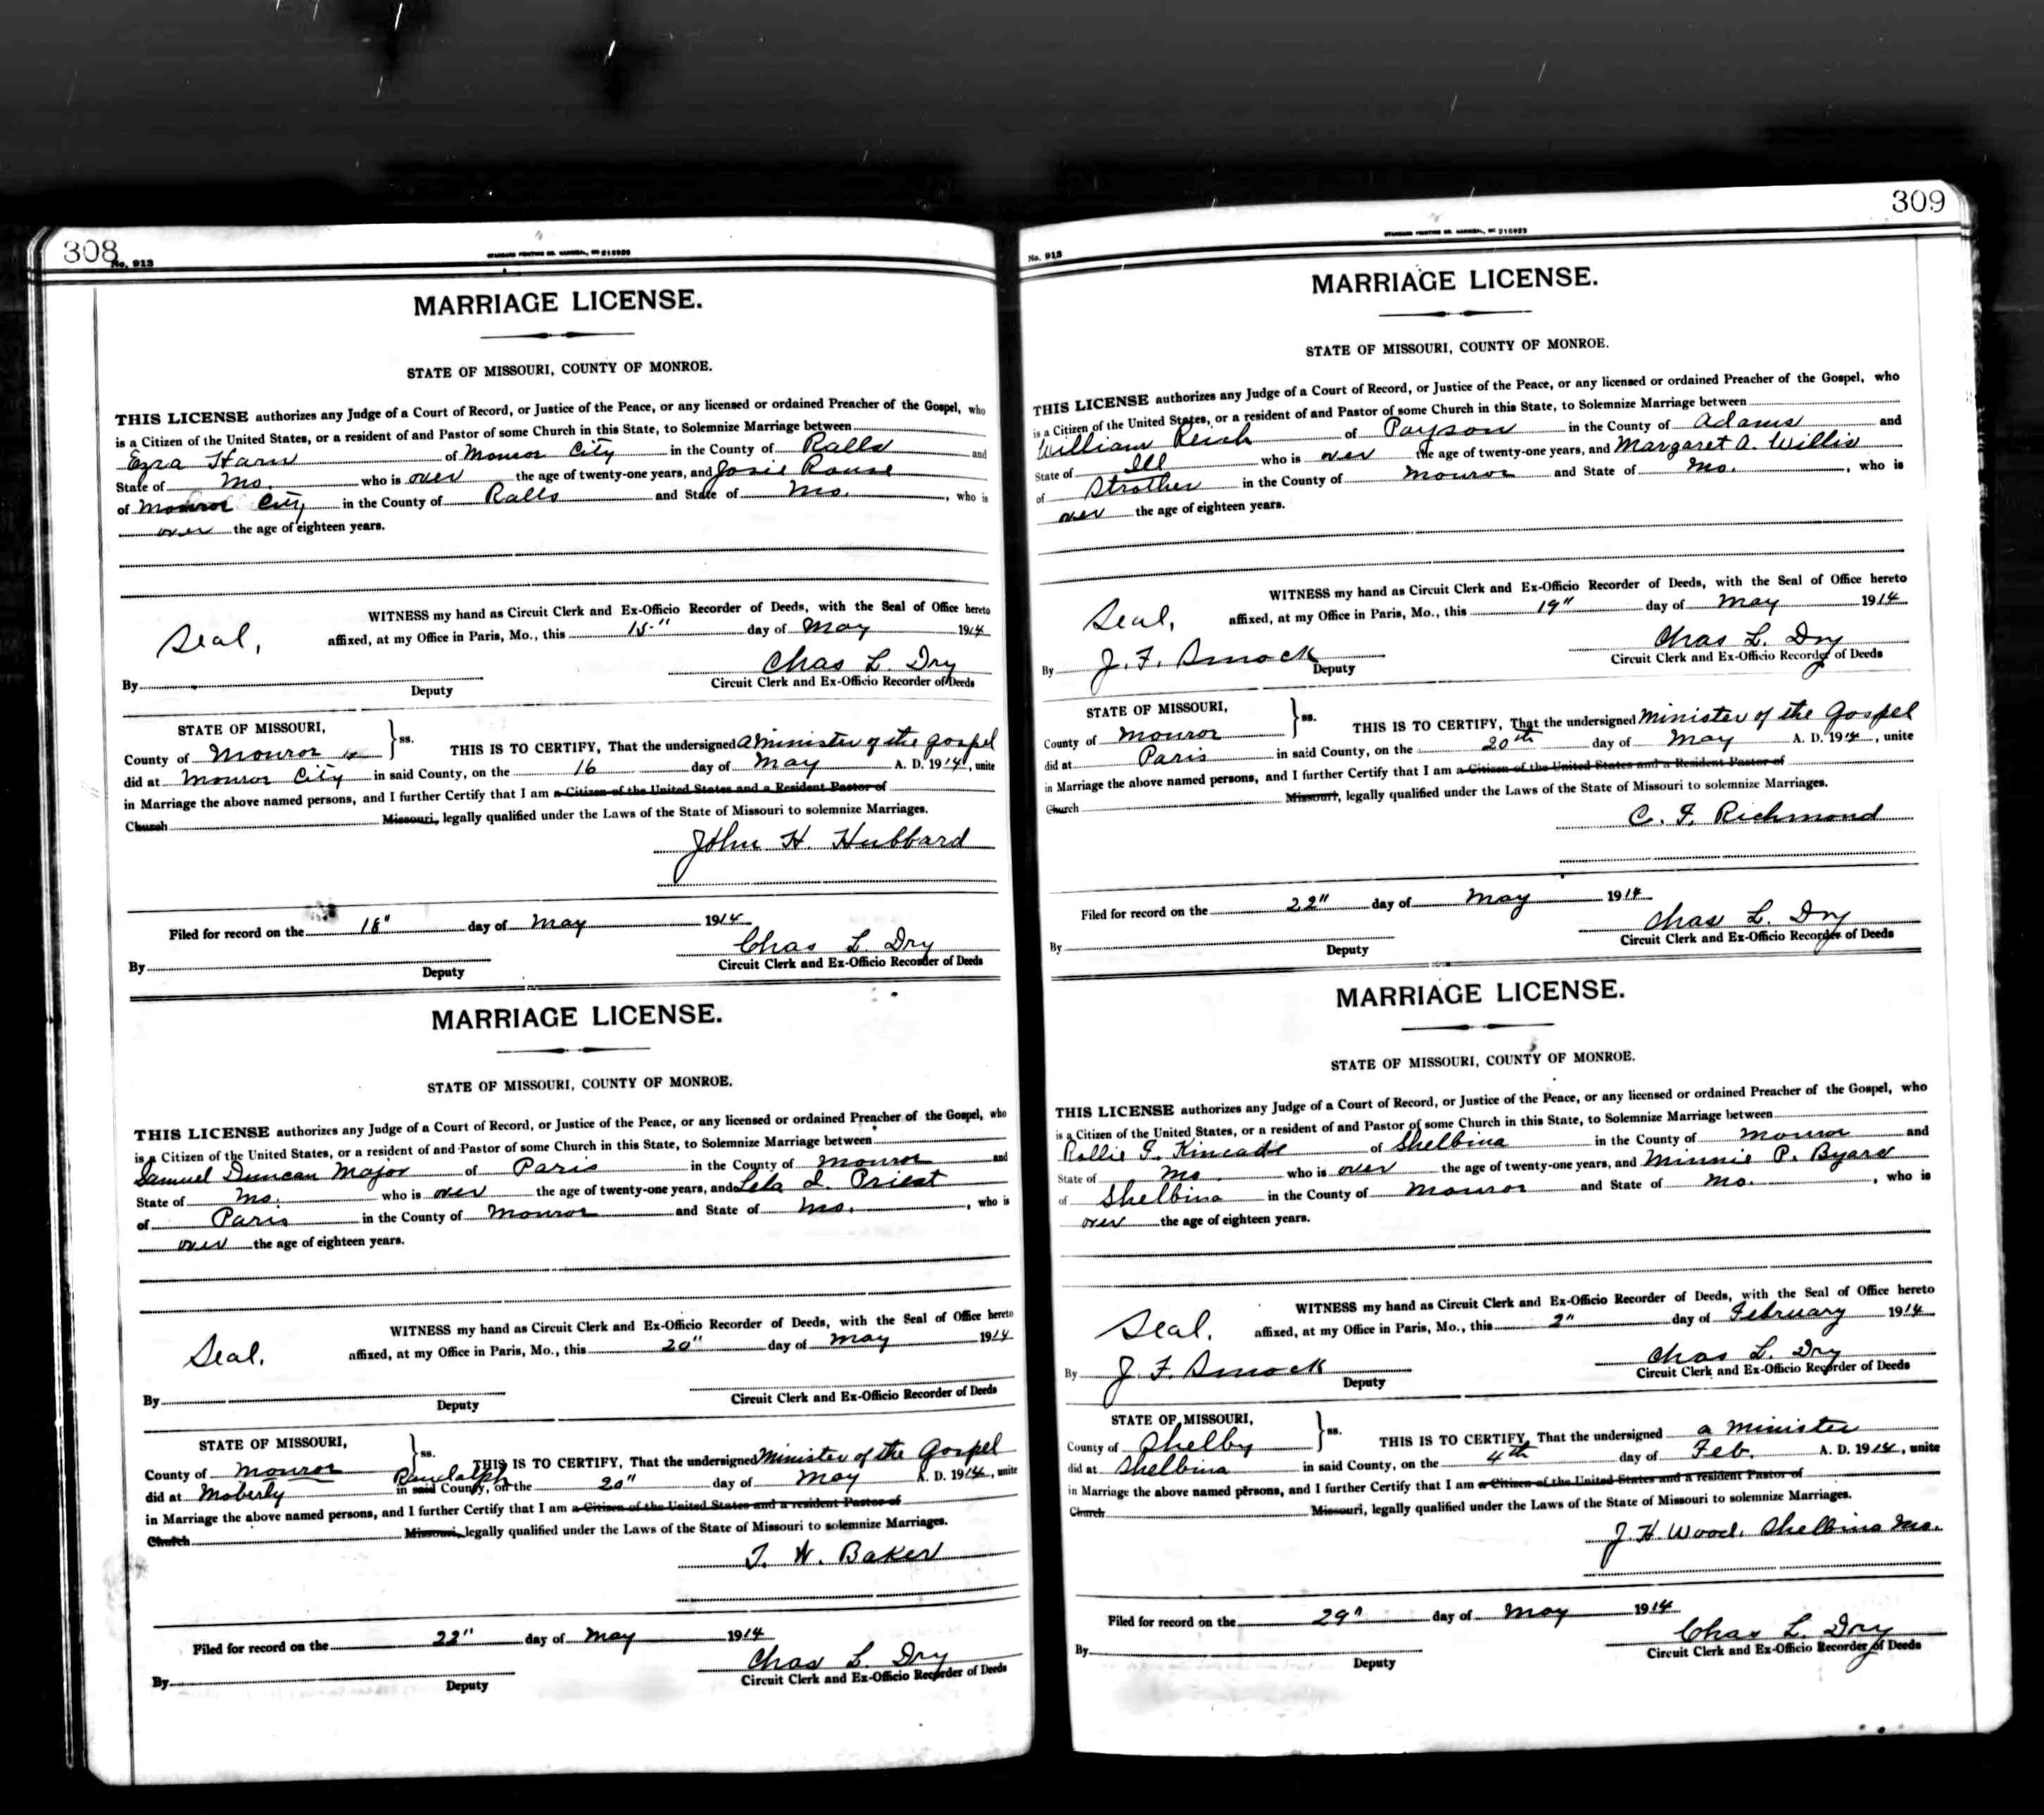 308
No. 913
STANDARD PRINTING CO. HANNIBAL, MO 216923
MARRIAGE LICENSE.
STATE OF MISSOURI, COUNTY OF MONROE.
THIS LICENSE authorizes any Judge of a Court of Record, or Justice of the Peace, or any licensed or ordained Preacher of the Gospel, who
is a Citizen of the United States, or a resident of and Pastor of some Church in this State, to Solemnize Marriage between
Ezra Harn of Monroe City in the County of Ralls and
State of Mo. who is over the age of twenty-one years, and Josie Rouse
of Monroe City in the County of Ralls and State of Mo., who is
over the age of eighteen years.
WITNESS my hand as Circuit Clerk and Ex-Officio Recorder of Deeds, with the Seal of Office hereto
Seal, affixed, at my Office in Paris, Mo., this 15" day of May 1914
Chas L. Dry
By Deputy Circuit Clerk and Ex-Officio Recorder of Deeds
STATE OF MISSOURI,
County of Monroe ss. THIS IS TO CERTIFY, That the undersigned a minister of the gospel
did at Monroe City in said County, on the 16 day of May A. D. 1914, unite
in Marriage the above named persons, and I further Certify that I am a Citizen of the United States and a Resident Pastor of
Church Missouri, legally qualified under the Laws of the State of Missouri to solemnize Marriages.
John H. Hubbard
Filed for record on the 18" day of May 1914
Chas L. Dry
By Deputy Circuit Clerk and Ex-Officio Recorder of Deeds
MARRIAGE LICENSE.
STATE OF MISSOURI, COUNTY OF MONROE.
THIS LICENSE authorizes any Judge of a Court of Record, or Justice of the Peace, or any licensed or ordained Preacher of the Gospel, who
is a Citizen of the United States, or a resident of and Pastor of some Church in this State, to Solemnize Marriage between
Samuel Duncan Major of Paris in the County of Monroe and
State of Mo. who is over the age of twenty-one years, and Lela I. Priest
of Paris in the County of Monroe and State of Mo., who is
over the age of eighteen years.
WITNESS my hand as Circuit Clerk and Ex-Officio Recorder of Deeds, with the Seal of Office hereto
Seal. affixed, at my Office in Paris, Mo., this 20" day of May 1914
By Deputy Circuit Clerk and Ex-Officio Recorder of Deeds
STATE OF MISSOURI,
County of Monroe ss. THIS IS TO CERTIFY, That the undersigned Minister of the Gospel
did at Moberly Randolph in said County, on the 20" day of May A. D. 1914, unite
in Marriage the above named persons, and I further Certify that I am a Citizen of the United States and a resident Pastor of
Church Missouri, legally qualified under the Laws of the State of Missouri to solemnize Marriages.
T. W. Baker
Filed for record on the 22" day of May 1914
Chas L. Dry
By Deputy Circuit Clerk and Ex-Officio Recorder of Deeds
309
No. 913
STANDARD PRINTING CO. HANNIBAL, MO 216923
MARRIAGE LICENSE.
STATE OF MISSOURI, COUNTY OF MONROE.
THIS LICENSE authorizes any Judge of a Court of Record, or Justice of the Peace, or any licensed or ordained Preacher of the Gospel, who
is a Citizen of the United States, or a resident of and Pastor of some Church in this State, to Solemnize Marriage between
William Reich of Payson in the County of Adams and
State of Ill who is over the age of twenty-one years, and Margaret A. Willis
of Strother in the County of Monroe and State of Mo., who is
over the age of eighteen years.
WITNESS my hand as Circuit Clerk and Ex-Officio Recorder of Deeds, with the Seal of Office hereto
Seal, affixed, at my Office in Paris, Mo., this 19" day of May 1914
Chas L. Dry
By J. F. Smock Deputy Circuit Clerk and Ex-Officio Recorder of Deeds
STATE OF MISSOURI,
County of Monroe ss. THIS IS TO CERTIFY, That the undersigned Minister of the Gospel
did at Paris in said County, on the 20th day of May A. D. 1914, unite
in Marriage the above named persons, and I further Certify that I am a Citizen of the United States and a Resident Pastor of
Church Missouri, legally qualified under the Laws of the State of Missouri to solemnize Marriages.
C. F. Richmond
Filed for record on the 22" day of May 1914
Chas L. Dry
By Deputy Circuit Clerk and Ex-Officio Recorder of Deeds
MARRIAGE LICENSE.
STATE OF MISSOURI, COUNTY OF MONROE.
THIS LICENSE authorizes any Judge of a Court of Record, or Justice of the Peace, or any licensed or ordained Preacher of the Gospel, who
is a Citizen of the United States, or a resident of and Pastor of some Church in this State, to Solemnize Marriage between
Rollie F. Kincade of Shelbina in the County of Monroe and
State of Mo. who is over the age of twenty-one years, and Minnie P. Byars
of Shelbina in the County of Monroe and State of Mo., who is
over the age of eighteen years.
WITNESS my hand as Circuit Clerk and Ex-Officio Recorder of Deeds, with the Seal of Office hereto
Seal. affixed, at my Office in Paris, Mo., this 2" day of February 1914
Chas L. Dry
By J. F. Smock Deputy Circuit Clerk and Ex-Officio Recorder of Deeds
STATE OF MISSOURI,
County of Shelby ss. THIS IS TO CERTIFY, That the undersigned a minister
did at Shelbina in said County, on the 4th day of Feb. A. D. 1914, unite
in Marriage the above named persons, and I further Certify that I am a Citizen of the United States and a resident Pastor of
Church Missouri, legally qualified under the Laws of the State of Missouri to solemnize Marriages.
J. H. Wood, Shelbina Mo.
Filed for record on the 29" day of May 1914
Chas L. Dry
By Deputy Circuit Clerk and Ex-Officio Recorder of Deeds